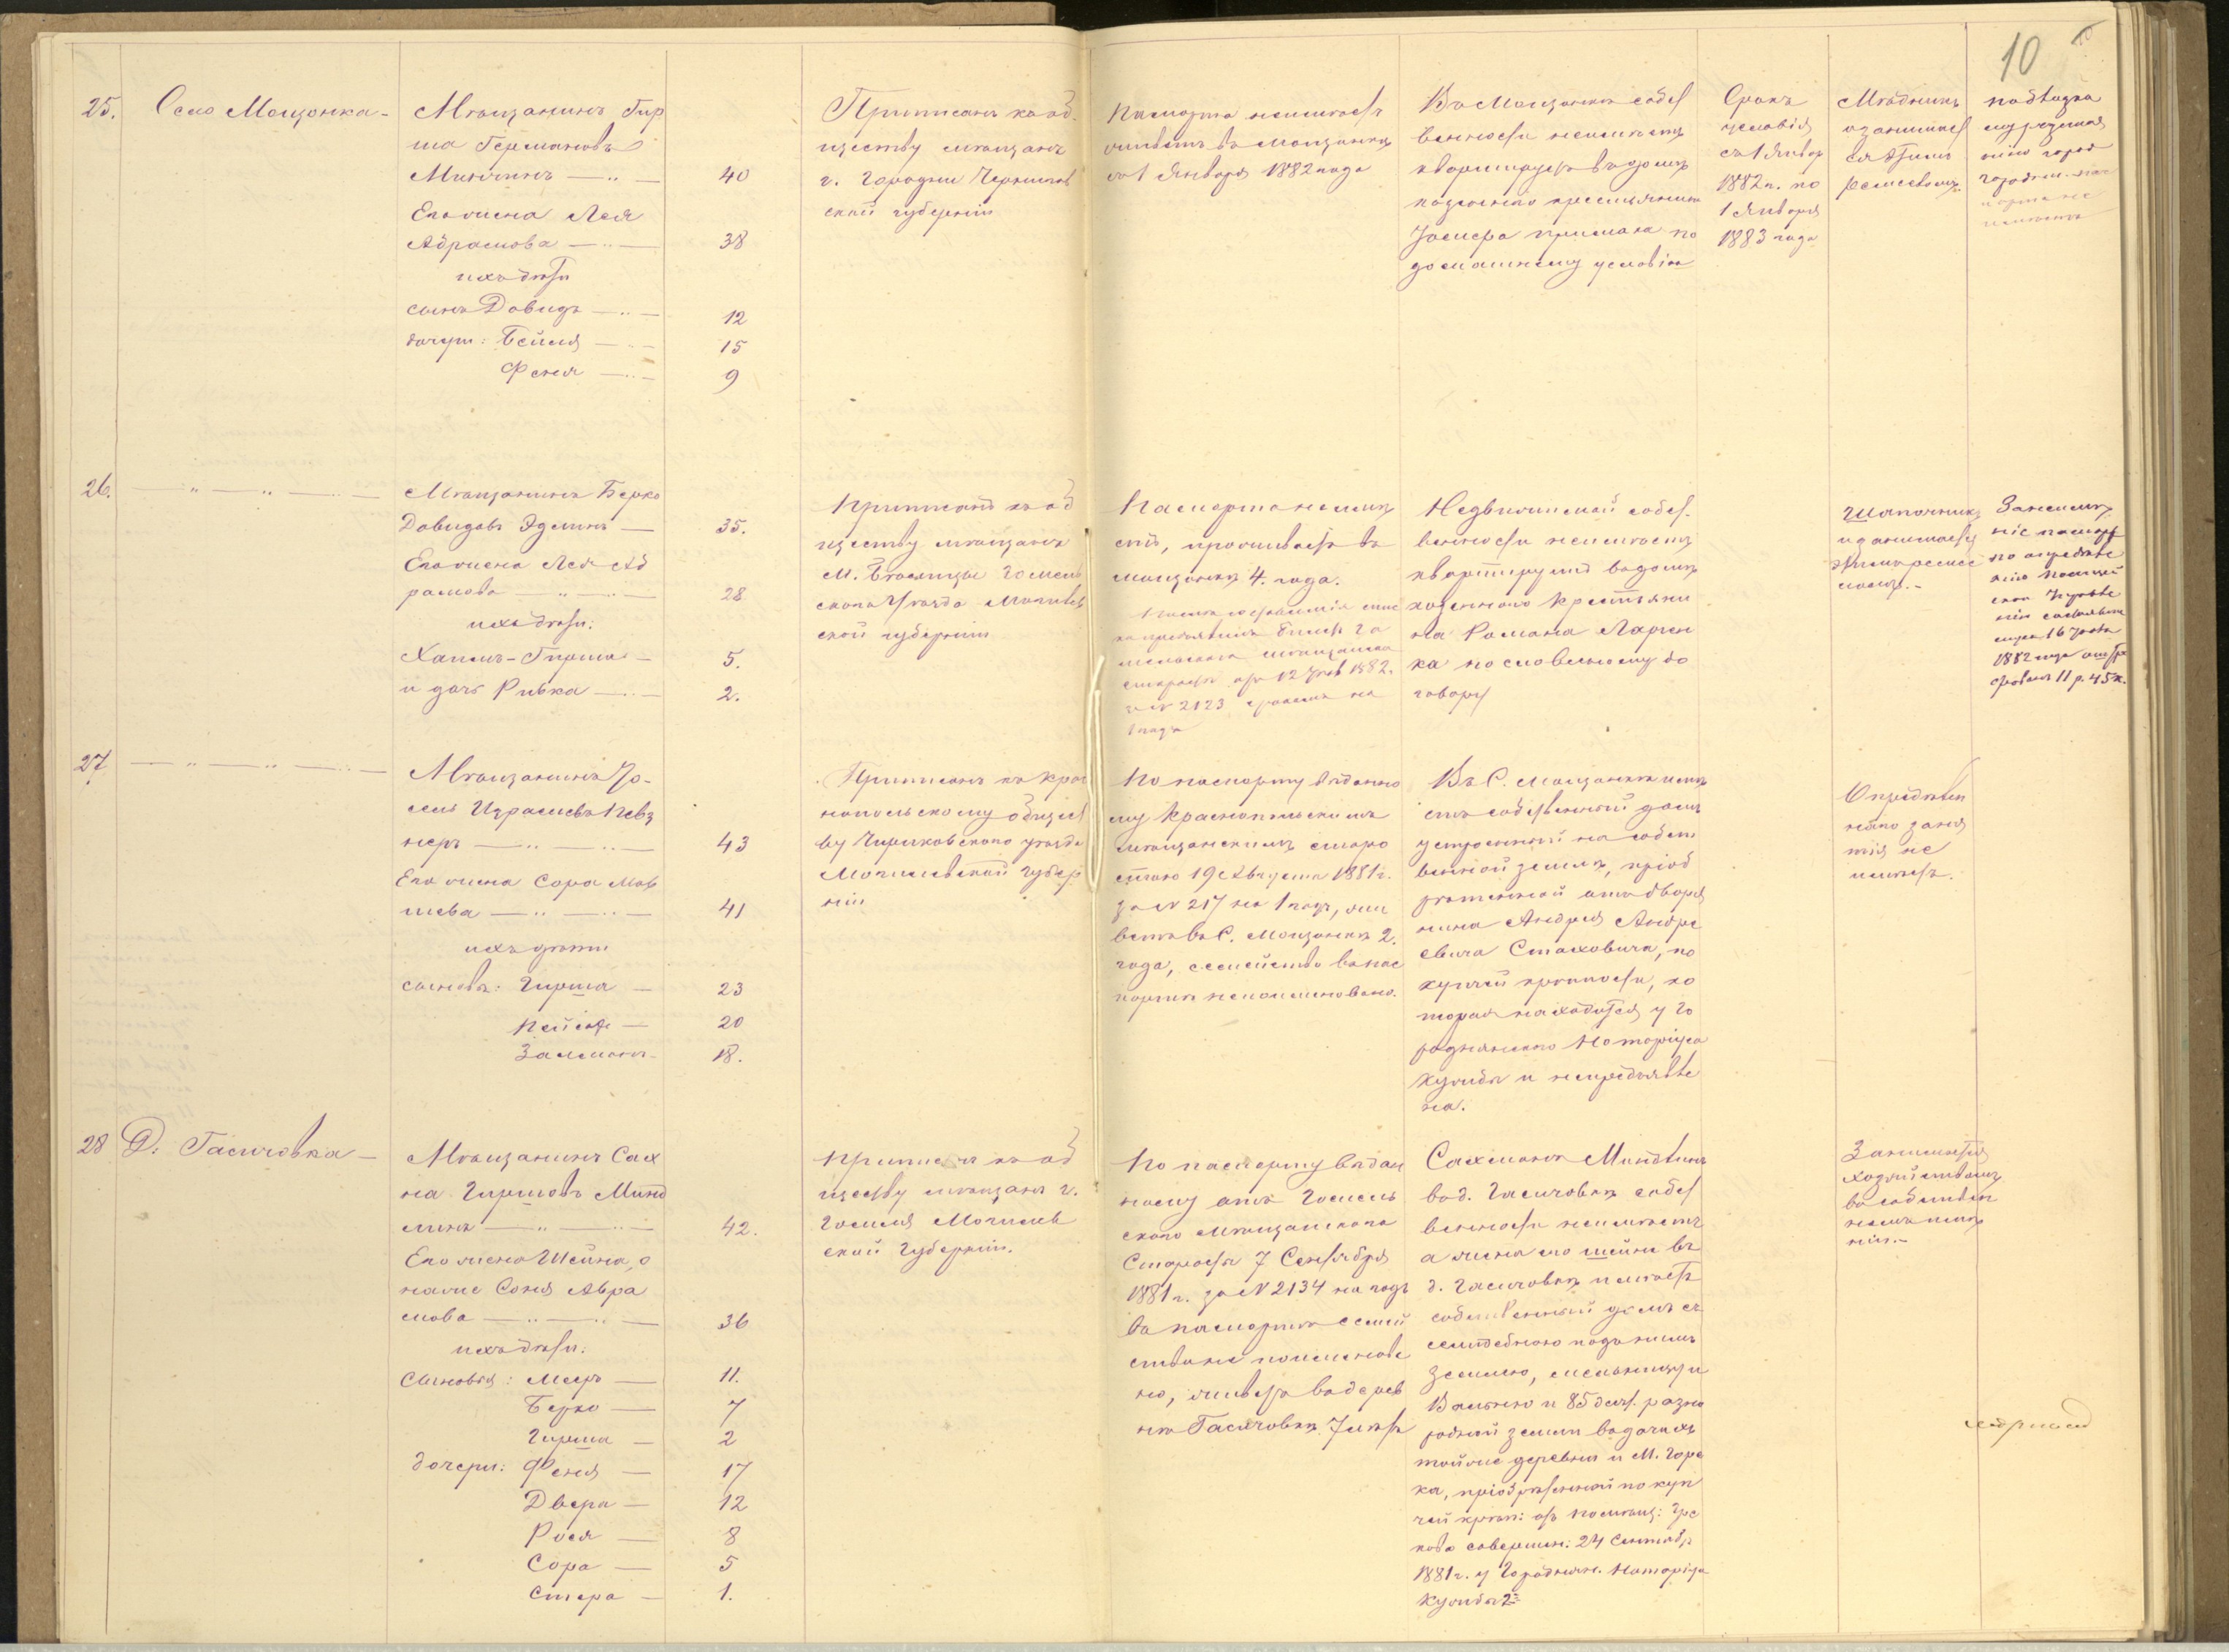 10
25.
Село Мощонка —
Мѣщанинъ Гир
ша Германовъ
— „ — 40
Его жена Лея
Абрамова — „ — 38
ихъ дѣти
сынъ Довидъ — „ — 12
дочери: Бейля — „ — 15
Феня — „ — 9
Приписанъ къ об
ществу мѣщанъ
г. Городни Чернигов
ской губерніи
Паспорта неимѣетъ
живетъ въ Мощонкѣ
съ 1 Января 1882 года
Въ Мощонкѣ собст
венности неимѣетъ
квартируетъ въ домѣ
казеннаго крестьянина
по
домашнему условію
Срокъ
условія
съ 1 Январ
1882 г. по
1 Января
1883 года
Мѣдникъ
изанимает
ся этимъ
ремесломъ.
26. — „ — „ — „ —
Мѣщанинъ Берко
Довидовъ Эдлинъ — 35.
Его жена Лея Аб
рамова — „ — 28
ихъ дѣти:
Хаимъ-Гирша — 5.
и дочь Ривка — „ — 2.
Приписанъ къ об
ществу мѣщанъ
м. Гомель
скаго Уѣзда Могилев
ской губерніи
Паспорта неимѣ
етъ, проживаетъ въ
Мощонкѣ 4. года.
12 1882.
за № 2123 срокомъ на
1 годъ
Недвижимой собст
венности неимѣетъ
квартируетъ въ домѣ
казеннаго крестьяни
на Романа Ларчен
ка по словесному до
говору
Шапочникъ
и занимается
этимъ ремес
ломъ. —
16
1882 года
11 р. 45 к.
27. — „ — „ — „ —
Мѣщанинъ Іо-
сель Израилевъ Певз
неръ — „ — „ — 43
Его жена Сора Мов
шева — „ — „ — 41
ихъ дѣти
сыновья: Гирша — 23
Пейсахъ — 20
Залманъ — 18.
Приписанъ къ Крас
нопольскому общест
ву Чериковскаго уѣзда
Могилевской Губер
ніи
По паспорту выданно
му Краснопольскимъ
мѣщанскимъ старо
стою 19 Августа 1881 г.
за № 217 на 1 годъ, жи
ветъ въ С. Мощонкѣ 2.
года, семейство въ пас
портѣ непоименовано.
Въ С. Мощонкѣ имѣ
етъ собственный домъ
устроенный на собст
венной землѣ, пріоб
рѣтенной отъ дворя
нина Андрея Андре
евича Стаховича, по
купчей крѣпости, ко
торая находится у Го
роднянскаго Нотаріуса
Кулиды и непредъявле
на.
Опредѣлен
наго заня
тія не
имѣетъ.
28
Д. Гасичовка —
Мѣщанинъ Сах
на Гиршовъ Минд
линъ — „ — „ — 42.
Его жена Шейна, о
наже Соня Абра
мова — „ — „ — 36
ихъ дѣти:
Сыновья: Мееръ — 11.
Берко — 7
Гирша — 2
дочери: Феня — 17
Двера — 12
Рося — 8
Сора — 5
Стера — 1.
Приписанъ къ об
ществу мѣщанъ г.
Гомеля Могилев
ской Губерніи.
По паспорту выдан
ному отъ Гомель
скаго Мѣщанскаго
Старосты 7 Сентября
1881 г. за № 2134 на годъ
въ паспортѣ семей
ство не поименова
но, живетъ въ дерев
нѣ Гасичовкѣ 7 лѣтъ
Сахманъ Миндлинъ
въ д. Гасичовкѣ собст
венности неимѣетъ
а жена его Шейна въ
д. Гасичовкѣ имѣетъ
собственный домъ съ
усадебною подъ нимъ
землею, мельницу и
Вальню и 85 десят. разно
родной земли въ дачахъ
той же деревни и М. Горо
ка, пріобрѣтенной по куп
чей крѣп: отъ помѣщ:
совершен: 24 Сентябр
1881 г. у Городнян. Нотаріуса
Кулиды
Занимается
хозяйствомъ
въ собствен
номъ имѣ
ніи. —